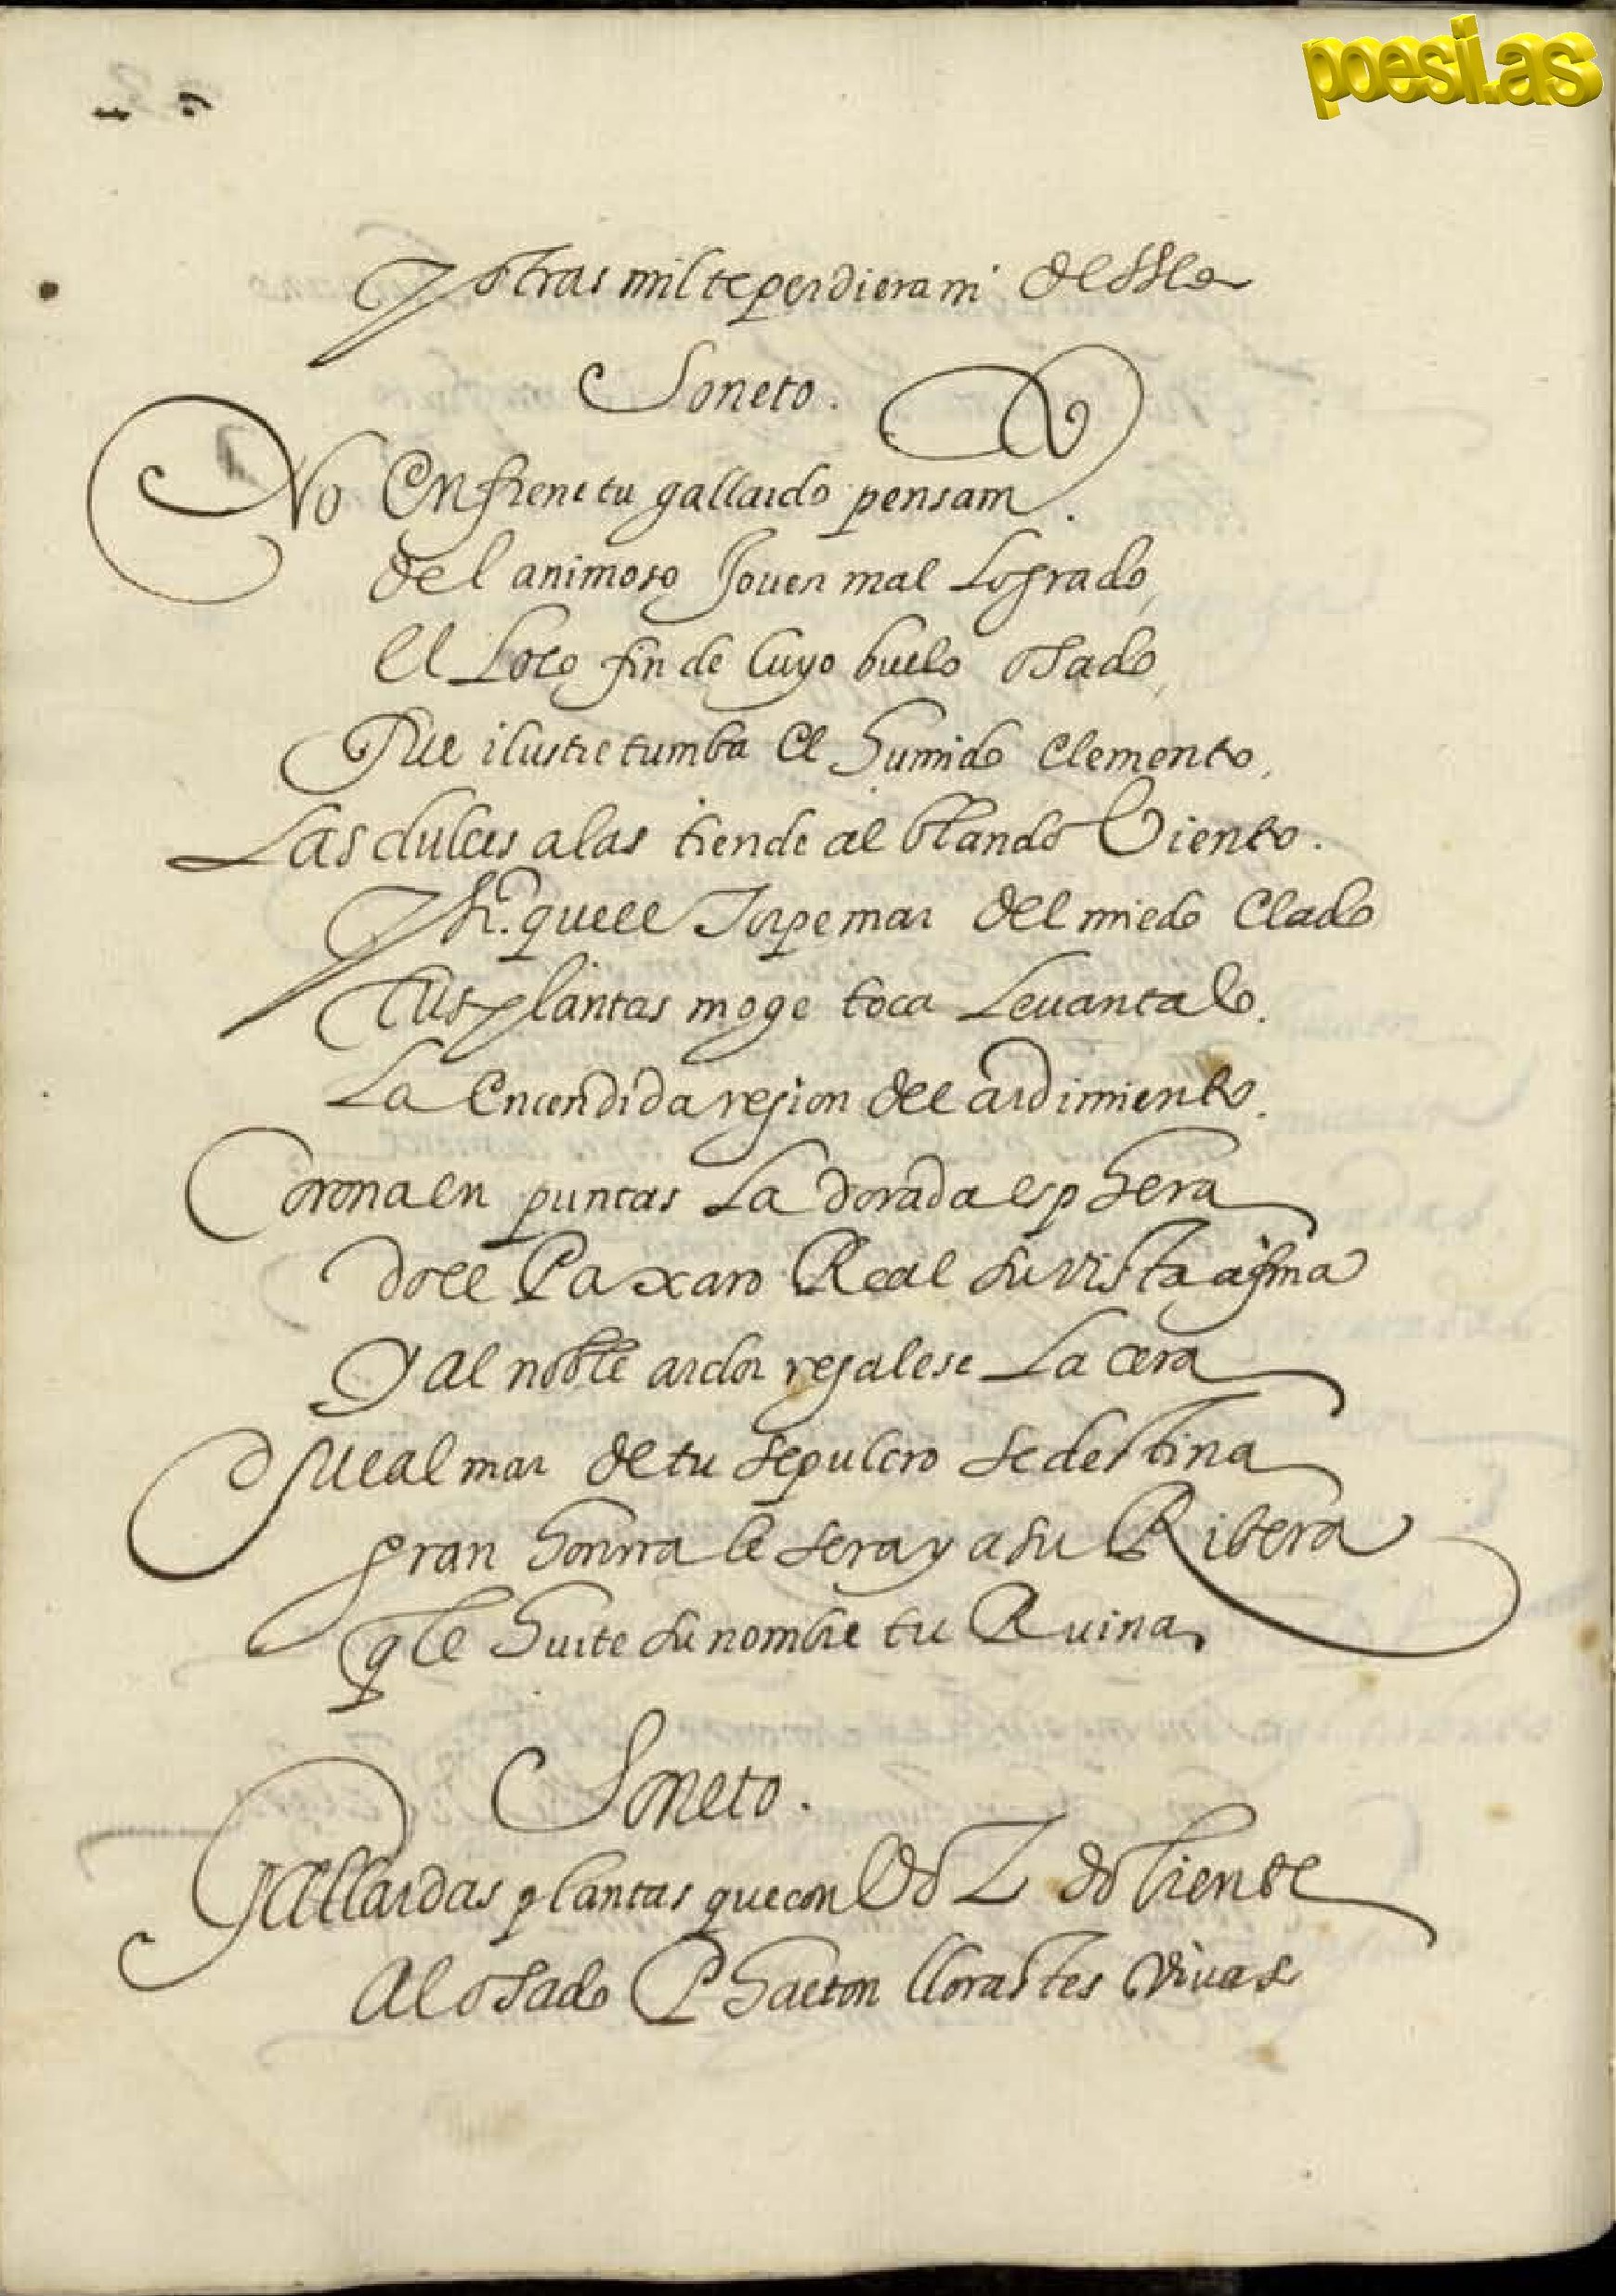 poesi.as
Y otras mil te perdiera mi desseo
Soneto.
No Enfrene tu gallardo pensam.
del animoso Jouen mal Logrado,
el Loco fin de Cuyo buelo osado,
Fue ilustre tumba el humido elemento,
Las dulces alas tiende al blando Viento.
Y sin que el Torpe mar del miedo elado
Tus plantas moge toca Leuantado.
La encendida region del ardimiento.
Corona en puntas La dorada esphera
do el Paxaro Real su vista afina
Y al noble ardor regalese La cera
Que al mar de tu sepulcro se destina
gran honrra le sera y a su Ribera
q le hurte su nombre tu Ruina,
Soneto.
Gallardas plantas que con Voz doliente
Al osado Phaeton llorastes Viuas